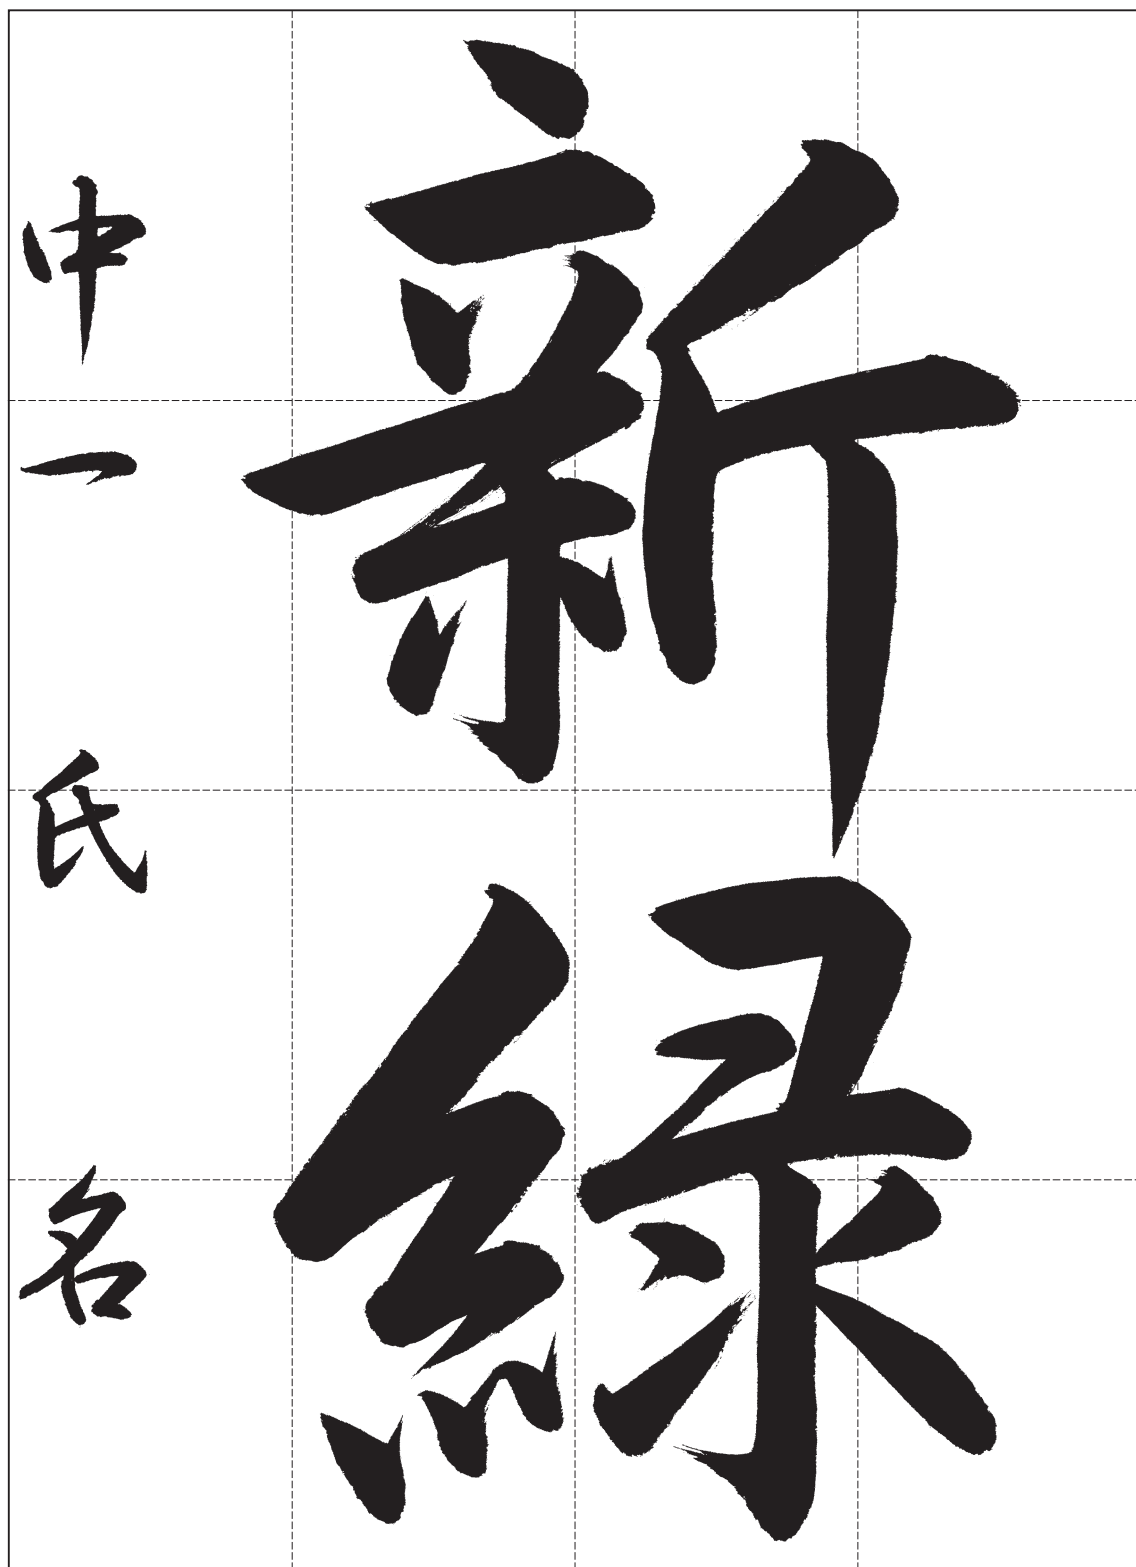 新緑
中一 氏名